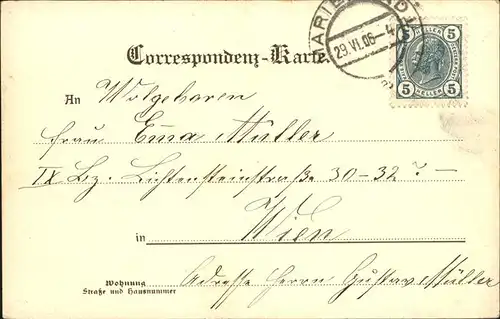 MARIE
29.VI.06-4
5 5
5 HELLER 5
Correspondenz-Karte.
An Wolgeboren
Frau Ema Müller
IX Bz. Lichtensteinstraße 30-32? -
in Wien
Wohnung
Straße und Hausnummer
Adresse Herrn Gustav Müller